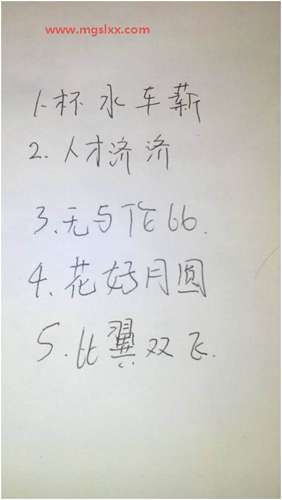 www.mgslxx.com
1.杯水车薪
2.人才济济
3.无与
4.花好月圆
5.比翼双飞.